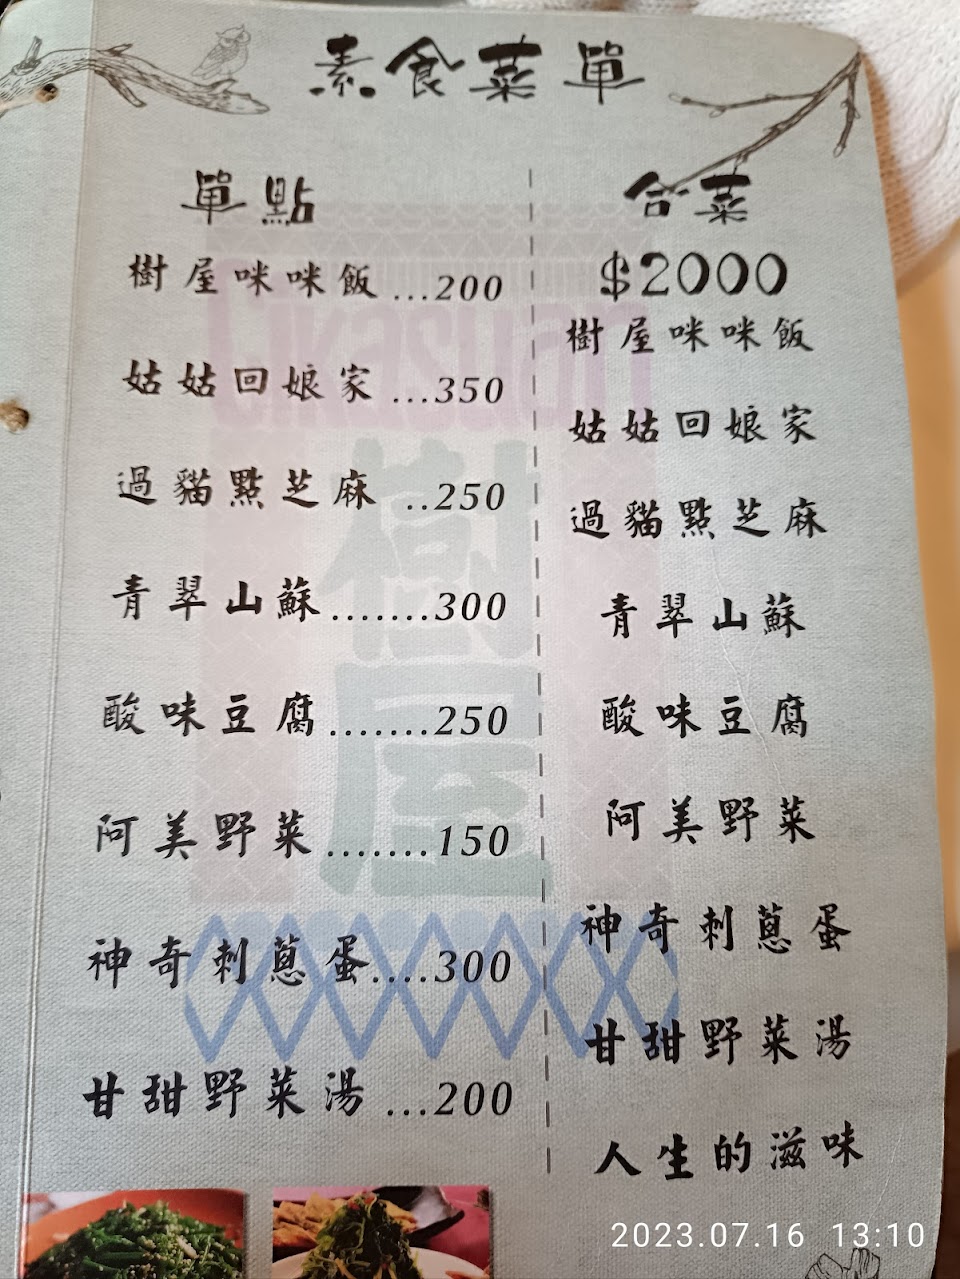 素食菜單
單點
樹屋咪咪飯...200
姑姑回娘家...350
過貓點芝麻..250
青翠山蘇.......300
酸味豆腐.......250
阿美野菜.......150
神奇刺蔥蛋....300
甘甜野菜湯...200
合菜
$2000
樹屋咪咪飯
姑姑回娘家
過貓點芝麻
青翠山蘇
酸味豆腐
阿美野菜
神奇刺蔥蛋
甘甜野菜湯
人生的滋味
樹屋
2023.07.16 13:10